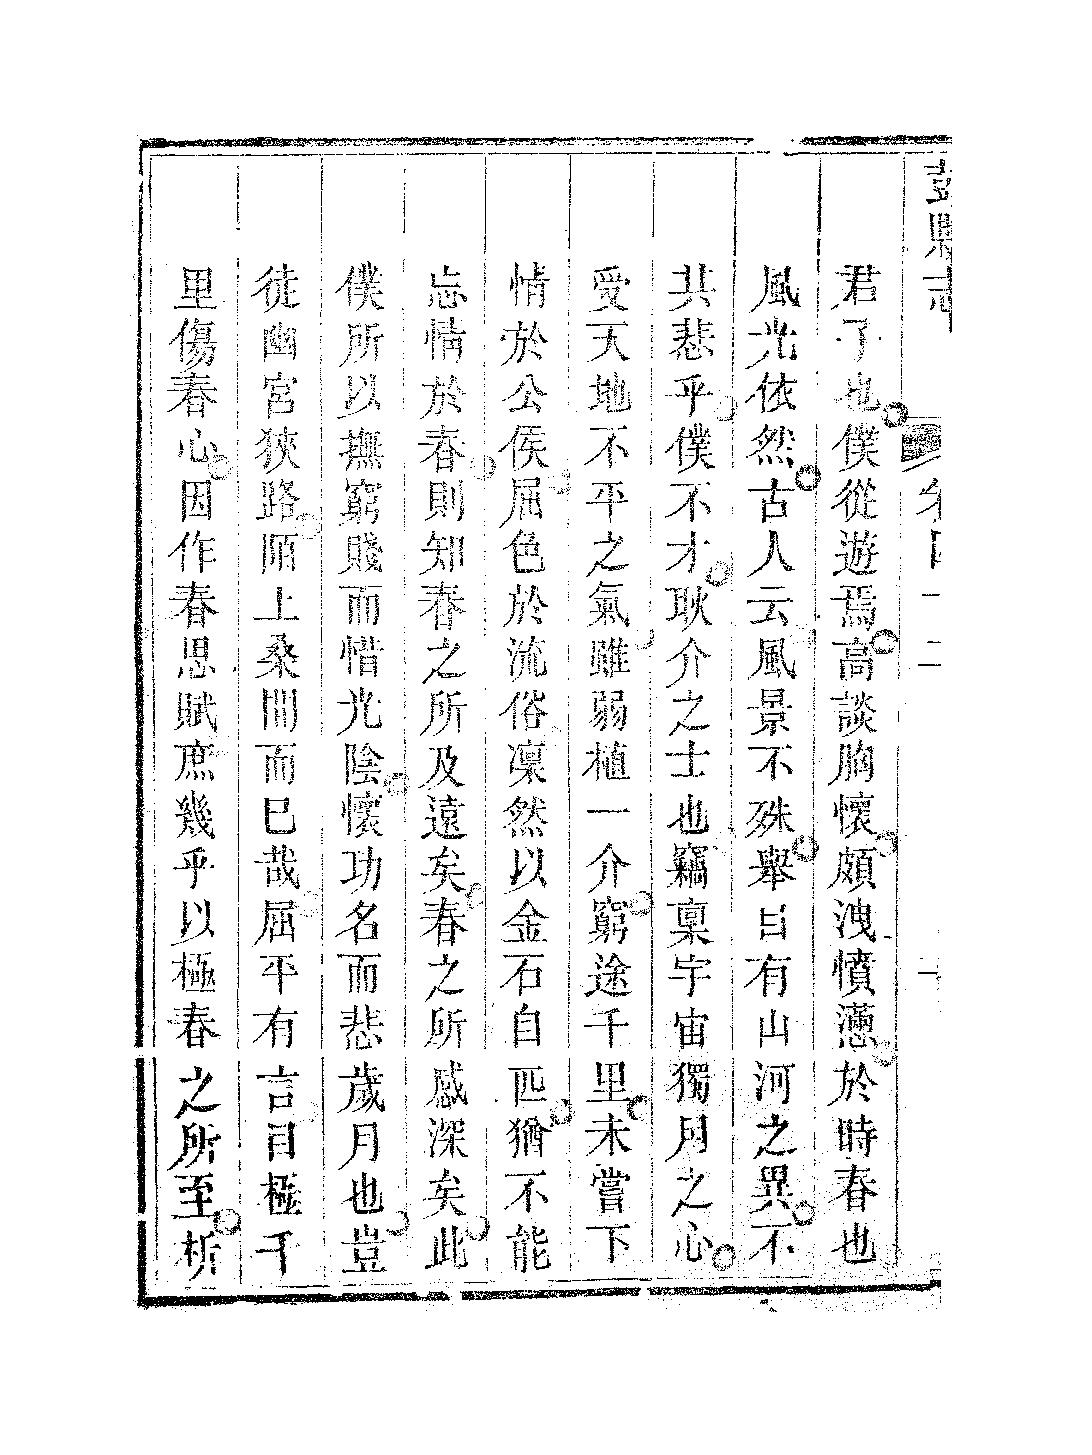 彭縣志
卷四十二
十
君子也僕從遊焉高談胸懷頗洩憤懣於時春也
風光依然古人云風景不殊舉目有山河之異不
共悲乎僕不才耿介之士也竊稟宇宙獨用之心
受天地不平之氣雖弱植一介窮途千里未嘗下
情於公侯屈色於流俗凜然以金石自匹猶不能
忘情於春則知春之所及遠矣春之所感深矣此
僕所以撫窮賤而惜光陰懷功名而悲歲月也豈
徒幽宮狹路陌上桑間而已哉屈平有言目極千
里傷春心因作春思賦庶幾乎以極春之所至析